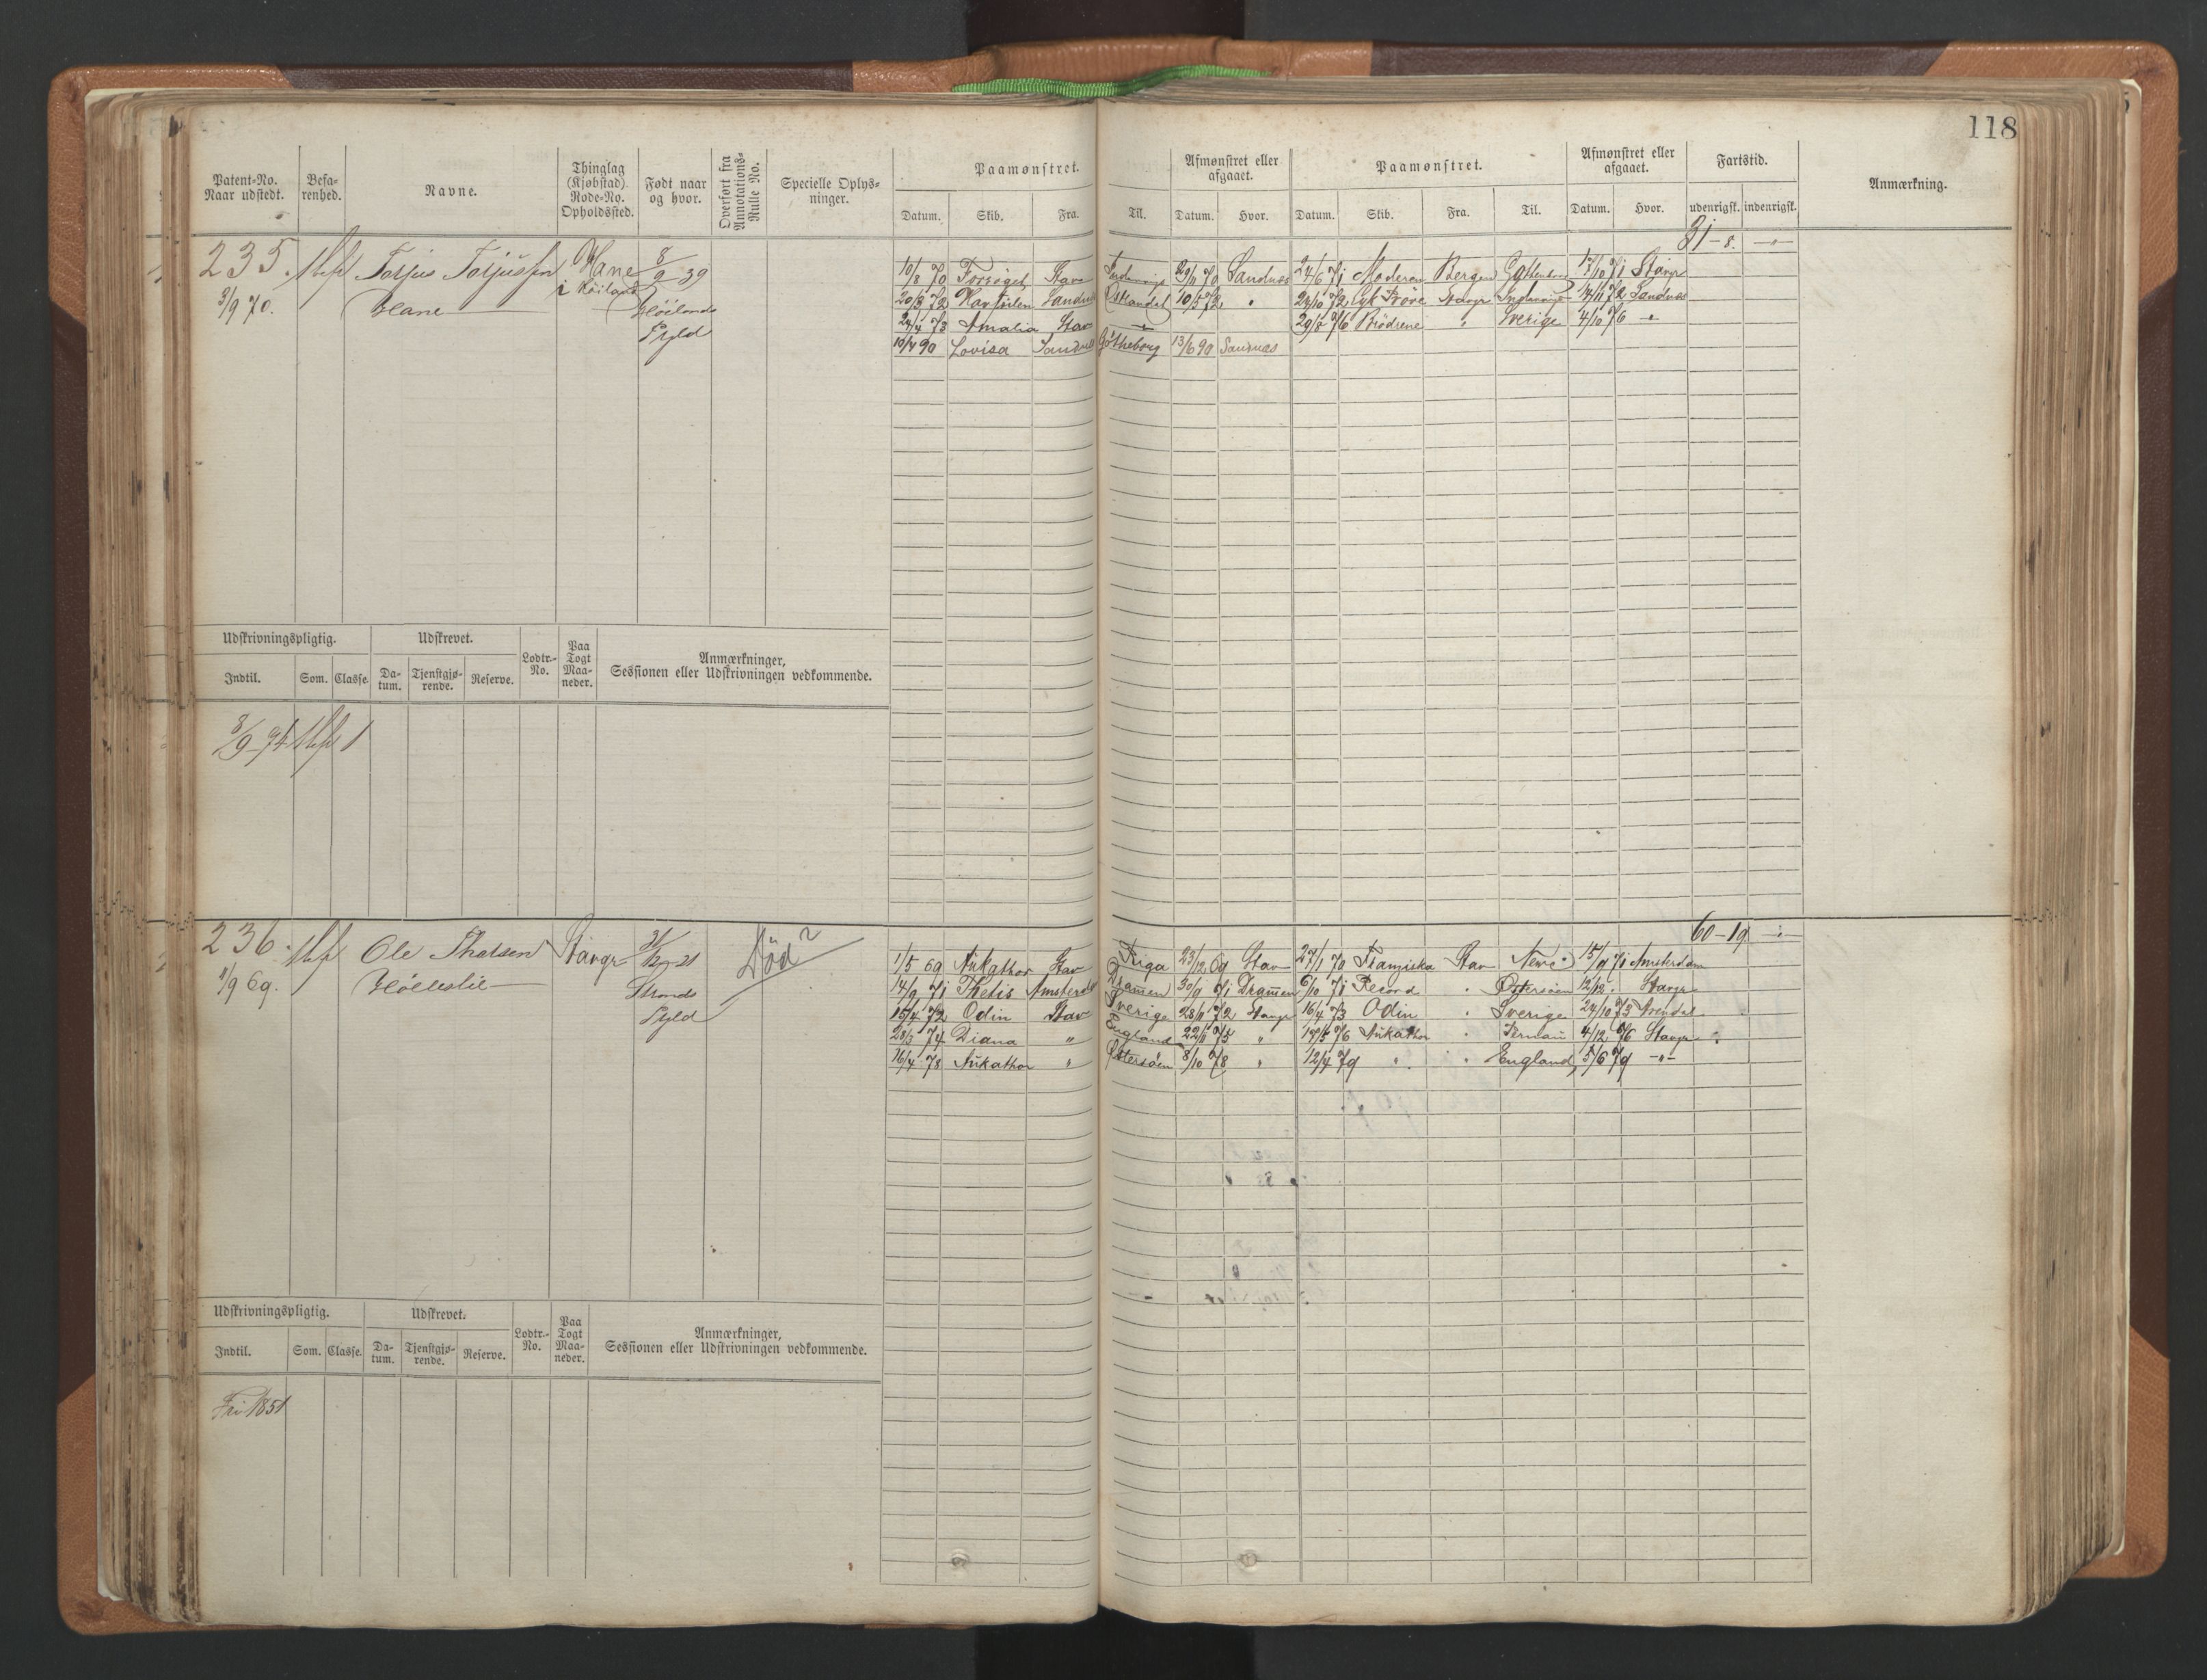 118
Patent-No. Naar udstedt. Befa-renhed. Navne. Thinglag (Kjøbstad) Rode-No. Opholdssted. Født naar og hvor. Overført fra Annotations-Rulle No. Specielle Oplys-ninger. Paamønstret. Afmønstret eller afgaaet. Paamønstret. Afmønstret eller afgaaet. Fartstid. Anmærkning.
Datum. Skib. Fra. Til. Datum. Hvor. Datum. Skib. Fra. Til. Datum. Hvor. udenrigsk. indenrigsk.
31-8. -"-
235. Torjus Torjussen Hane 8/9-39
3/9 70. Hane i Høiland Høilands Pgld
10/8 70 Forsøget Stav 29/11 70 Sandnæs 24/6 71 Moderen Bergen Gottenborg 17/10 71 Stavgr
20/3 72 Havfuilen Sandnæs Østlandet 10/5 72 " 24/10 72 Stavgr 14/11 72 Sandnæs
24/4 73 Amalia Stav 29/8 76 Brødrene " Sverige 4/10 76 "
10/4 90 Lovisa Sandnæs Gøtheborg 13/6 90 Sandnæs
Udskrivningspligtig. Udskrevet. Lodtr.-No. Paa Togt Maa-neder. Anmærkninger, Sessionen eller Udskrivningen vedkommende.
Indtil. Som. Classe. Da-tum. Tjenstgjø-rende. Reserve.
8/9-74 1
60-19. -"-
236. Ole Thoresen Stavgr 31/12-21 Död?
1/9 69. Hølleslie Strands Pgld
1/5 69 Nukathor Stav Riga 23/12 69 Stav 27/1 70 Franziska Stav Newc. 15/9 71 Amsterdam
14/9 71 Thetis Amsterd Dram̄en 30/9 71 Dram̄en 6/10 71 Record " Østersøen 12/12 . Stavgr
15/4 72 Odin Stav Sverige 28/11 72 Stavgr 16/4 73 Odin " Sverige 24/10 73 Arendal
20/3 74 Diana " England 22/11 75 " 19/5 76 Nukathor " Pernau 4/12 76 Stavgr
16/4 78 Nukathor " Østersøen 8/10 78 " 12/4 79 " " England 5/6 79 -"-
Udskrivningspligtig. Udskrevet. Lodtr.-No. Paa Togt Maa-neder. Anmærkninger, Sessionen eller Udskrivningen vedkommende.
Indtil. Som. Classe. Da-tum. Tjenstgjø-rende. Reserve.
Fri 1851